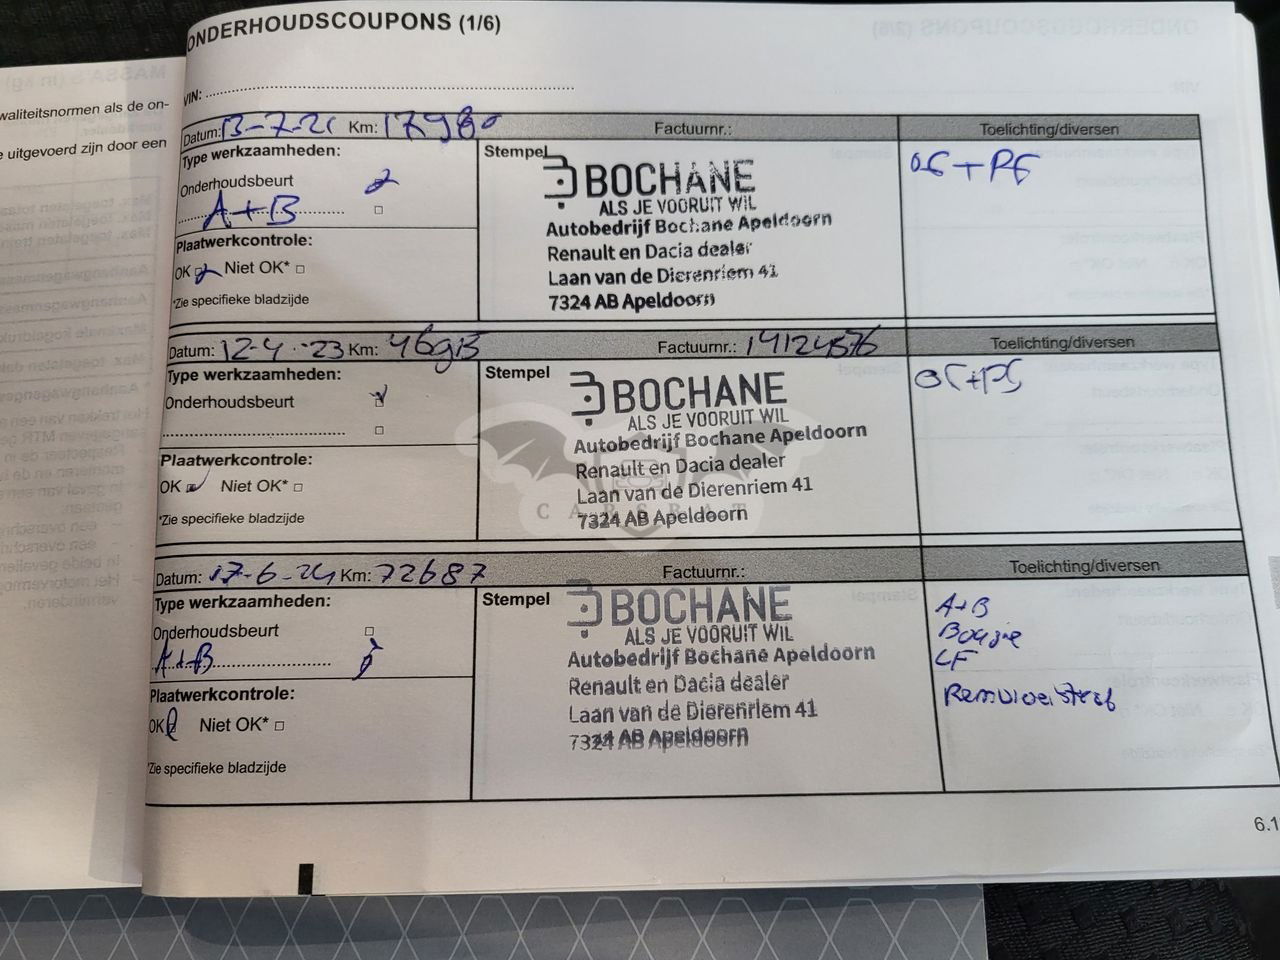 ONDERHOUDSCOUPONS (1/6)
waliteitsnormen als de on-
e uitgevoerd zijn door een
VIN:
Datum: 13-7-21 Km: 17980 Factuurnr.: Toelichting/diversen
Type werkzaamheden:
Onderhoudsbeurt
A+B
Plaatwerkcontrole:
OK Niet OK*
*Zie specifieke bladzijde
Stempel
BOCHANE
ALS JE VOORUIT WIL
Autobedrijf Bochane Apeldoorn
Renault en Dacia dealer
Laan van de Dierenriem 41
7324 AB Apeldoorn
Datum: 12-4-'23 Km: Factuurnr.: Toelichting/diversen
Type werkzaamheden:
Onderhoudsbeurt
Plaatwerkcontrole:
OK Niet OK*
*Zie specifieke bladzijde
Stempel
BOCHANE
ALS JE VOORUIT WIL
Autobedrijf Bochane Apeldoorn
Renault en Dacia dealer
Laan van de Dierenriem 41
7324 AB Apeldoorn
CARSBAT
Datum: 17-6-24 Km: 72687 Factuurnr.: Toelichting/diversen
Type werkzaamheden:
Onderhoudsbeurt
A+B
Plaatwerkcontrole:
OK Niet OK*
*Zie specifieke bladzijde
Stempel
BOCHANE
ALS JE VOORUIT WIL
Autobedrijf Bochane Apeldoorn
Renault en Dacia dealer
Laan van de Dierenriem 41
7324 AB Apeldoorn
A+B
Bougie
LF
6.1